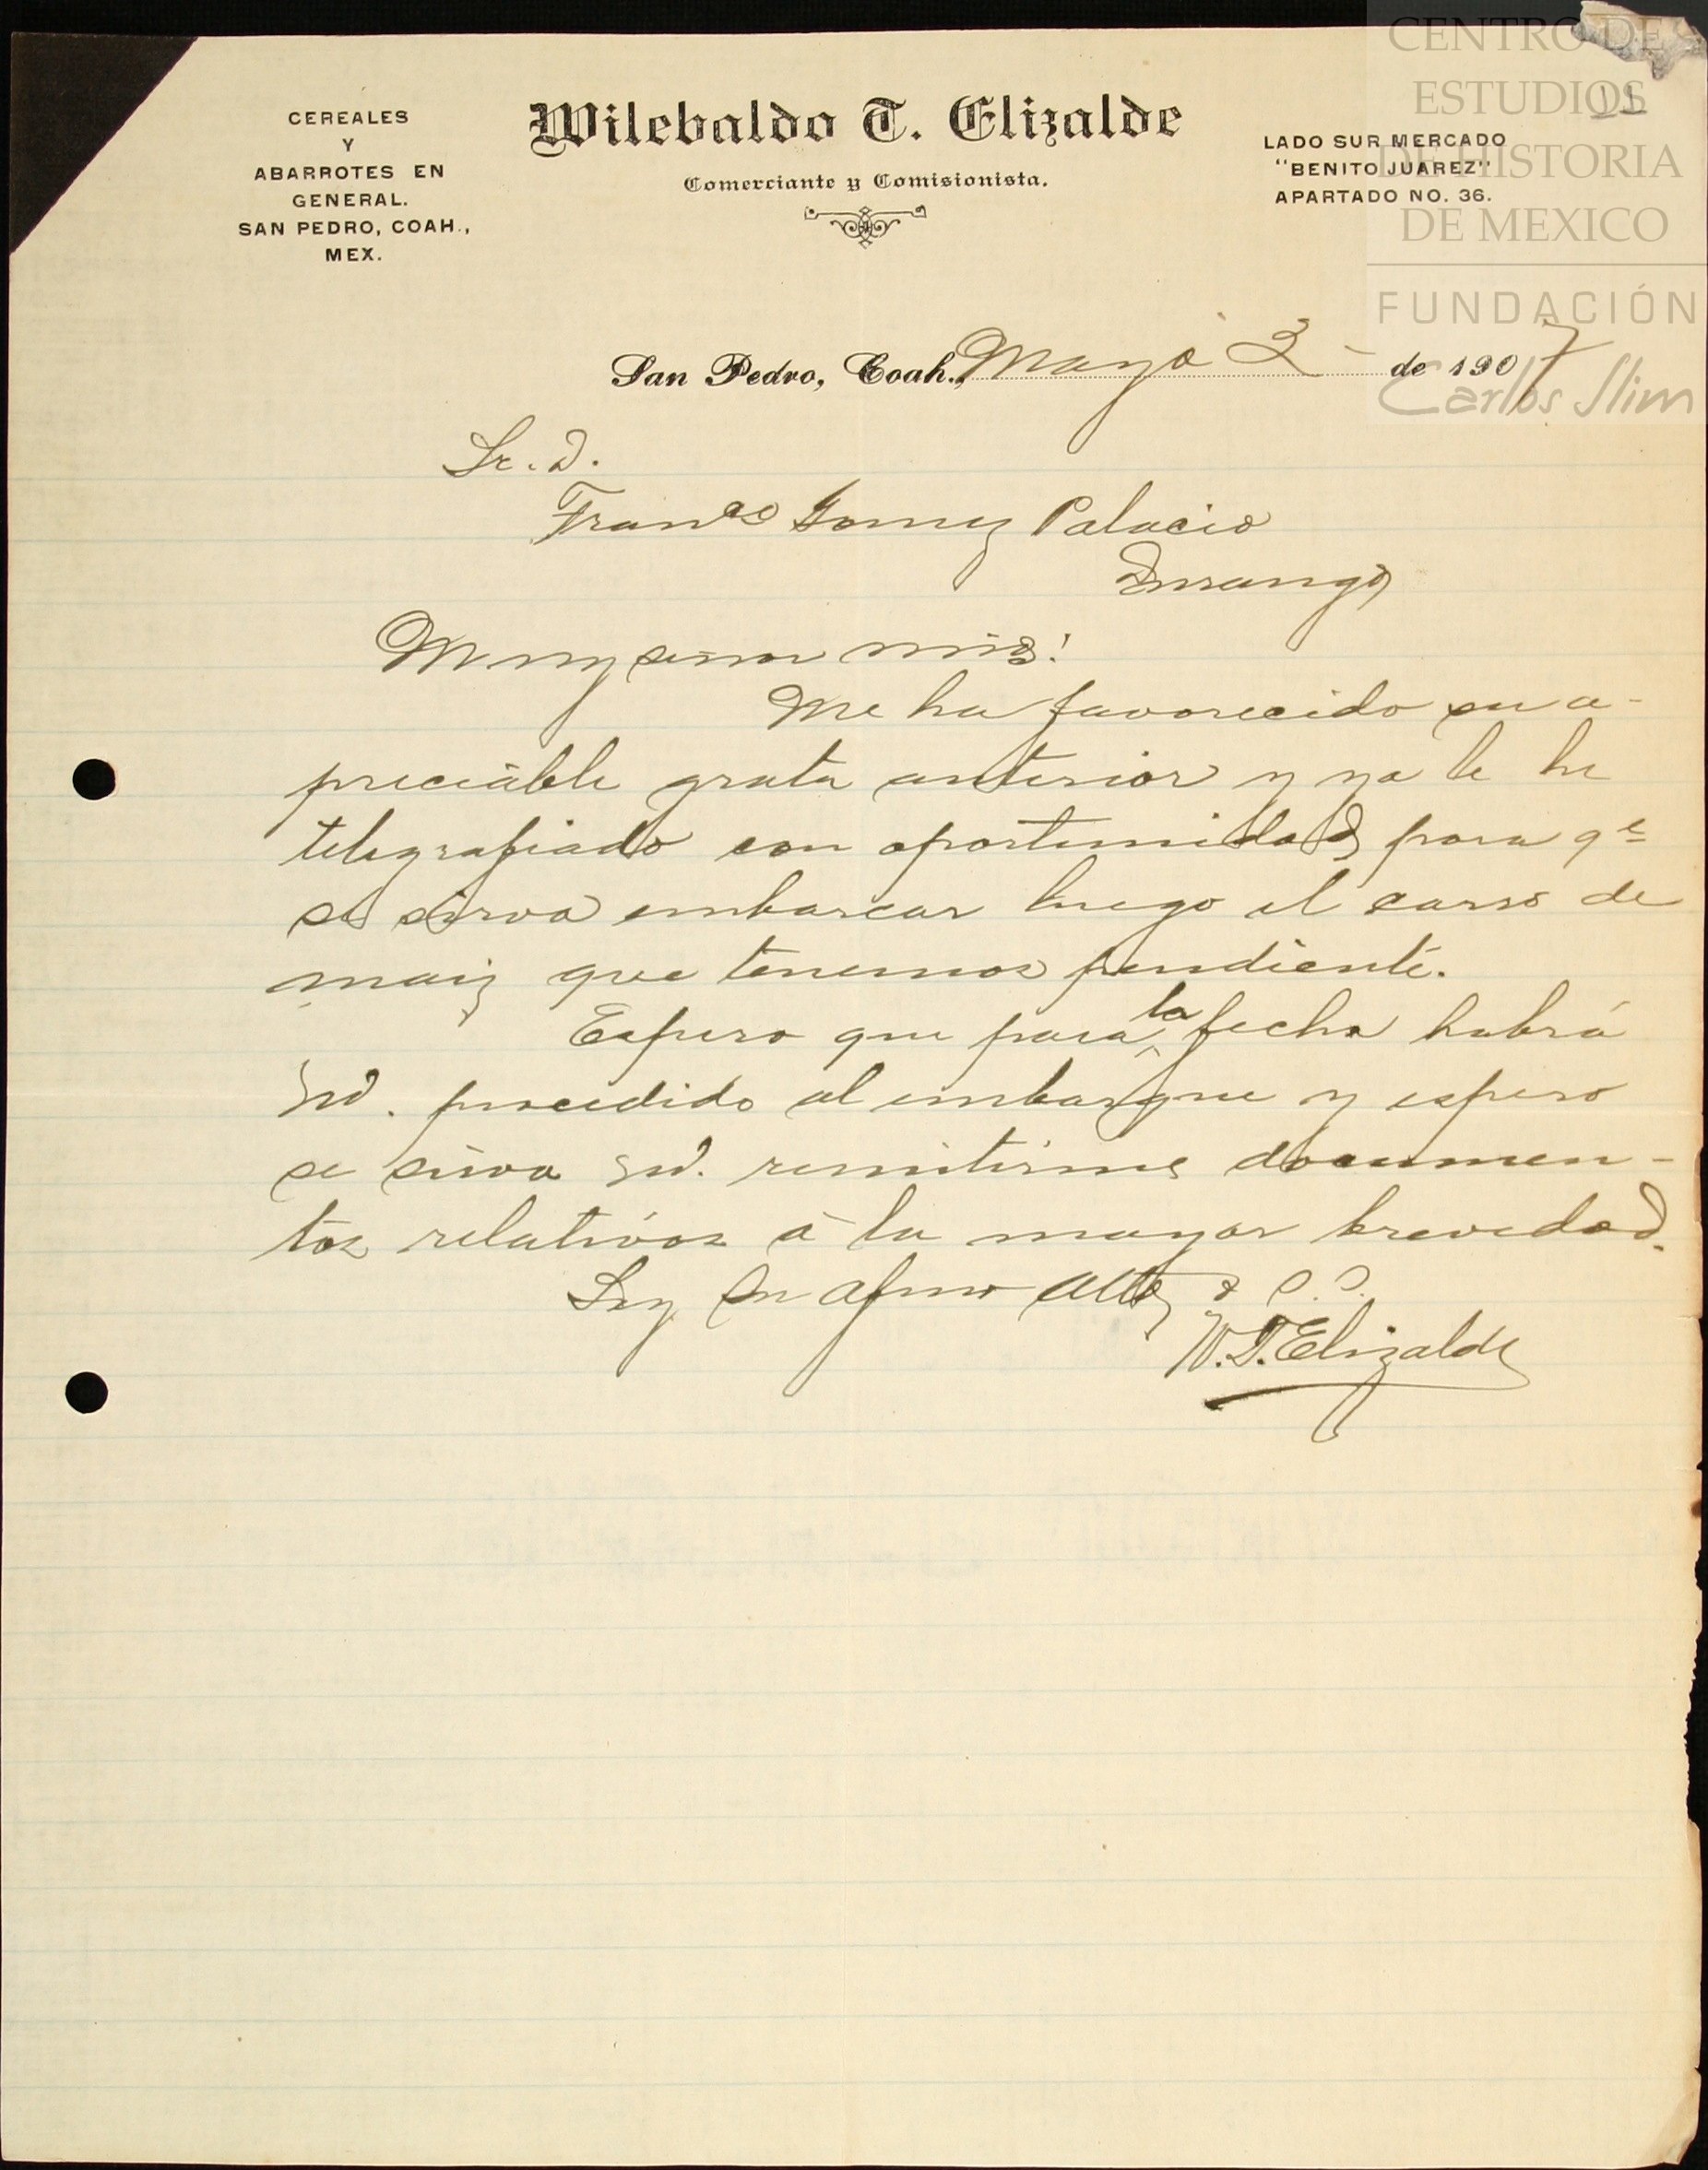 CEREALES
Y
ABARROTES EN
GENERAL.
SAN PEDRO, COAH.,
MEX.
Wilebaldo T. Elizalde
Comerciante y Comisionista.
LADO SUR MERCADO
"BENITO JUAREZ"
APARTADO NO. 36.
CENTRO DE
ESTUDIOS
DE HISTORIA
DE MEXICO
FUNDACIÓN
Carlos Slim
11
San Pedro, Coah., Mayo 2 - de 1907
Sr. D.
Franco Gomez Palacio
Durango
Muy señor mio:
Me ha favorecido su a-
preciable grata anterior y ya le he
telegrafiado con oportunidad para qe
se sirva embarcar luego el carro de
maiz que tenemos pendiente.
Espero que para la fecha habrá
Ud. procedido al embarque y espero
se sirva Ud. remitirme documen-
tos relativos á la mayor brevedad.
Soy su afmo atto y S.S.
W.T. Elizalde